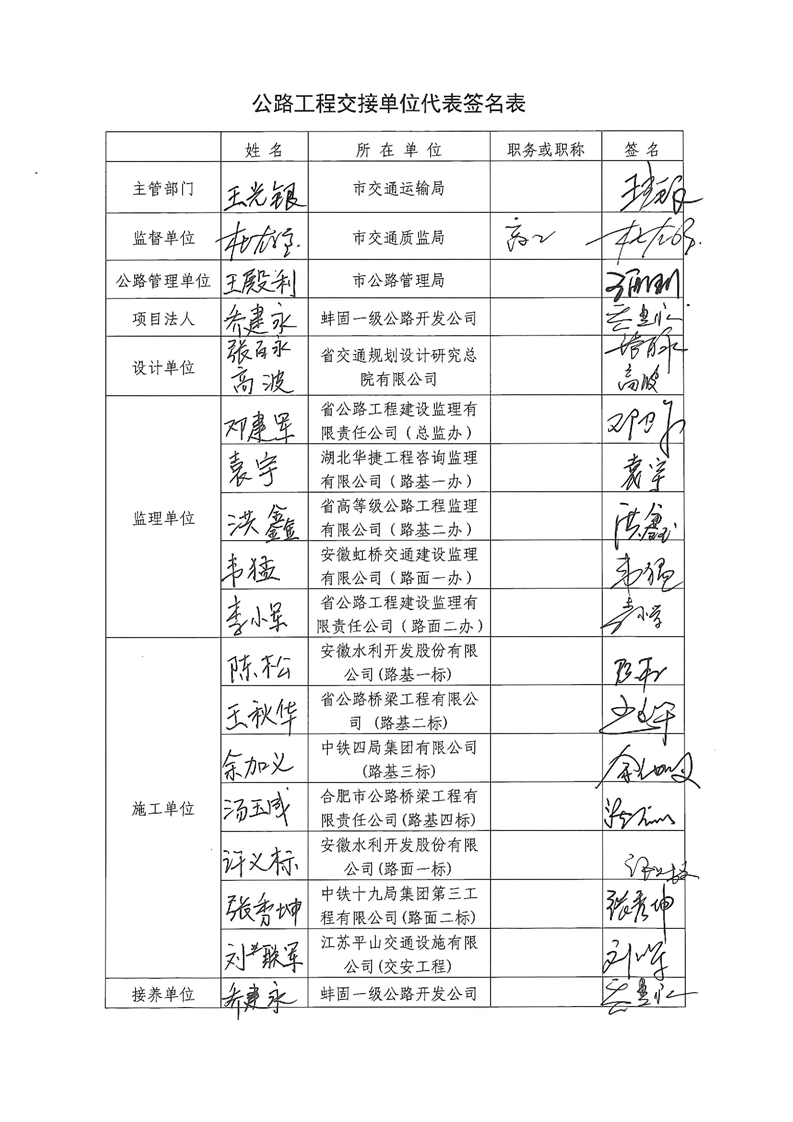 公路工程交接单位代表签名表
姓 名 所 在 单 位 职务或职称 签 名
主管部门 王光银 市交通运输局
监督单位 市交通质监局 高工
公路管理单位 王殿利 市公路管理局
项目法人 乔建永 蚌固一级公路开发公司
设计单位 张百永 省交通规划设计研究总
高波 院有限公司 高波
监理单位 邓建军 省公路工程建设监理有
限责任公司（总监办）
袁宇 湖北华捷工程咨询监理 袁宇
有限公司（路基一办）
洪鑫 省高等级公路工程监理 洪鑫
有限公司（路基二办）
韦猛 安徽虹桥交通建设监理 韦猛
有限公司（路面一办）
李小军 省公路工程建设监理有
限责任公司（路面二办）
施工单位 陈松 安徽水利开发股份有限
公司(路基一标)
王秋华 省公路桥梁工程有限公
司 (路基二标)
余加义 中铁四局集团有限公司
(路基三标)
汤玉成 合肥市公路桥梁工程有
限责任公司(路基四标)
许义标 安徽水利开发股份有限
公司(路面一标)
张秀坤 中铁十九局集团第三工 张秀坤
程有限公司(路面二标)
刘联军 江苏平山交通设施有限
公司(交安工程)
接养单位 乔建永 蚌固一级公路开发公司